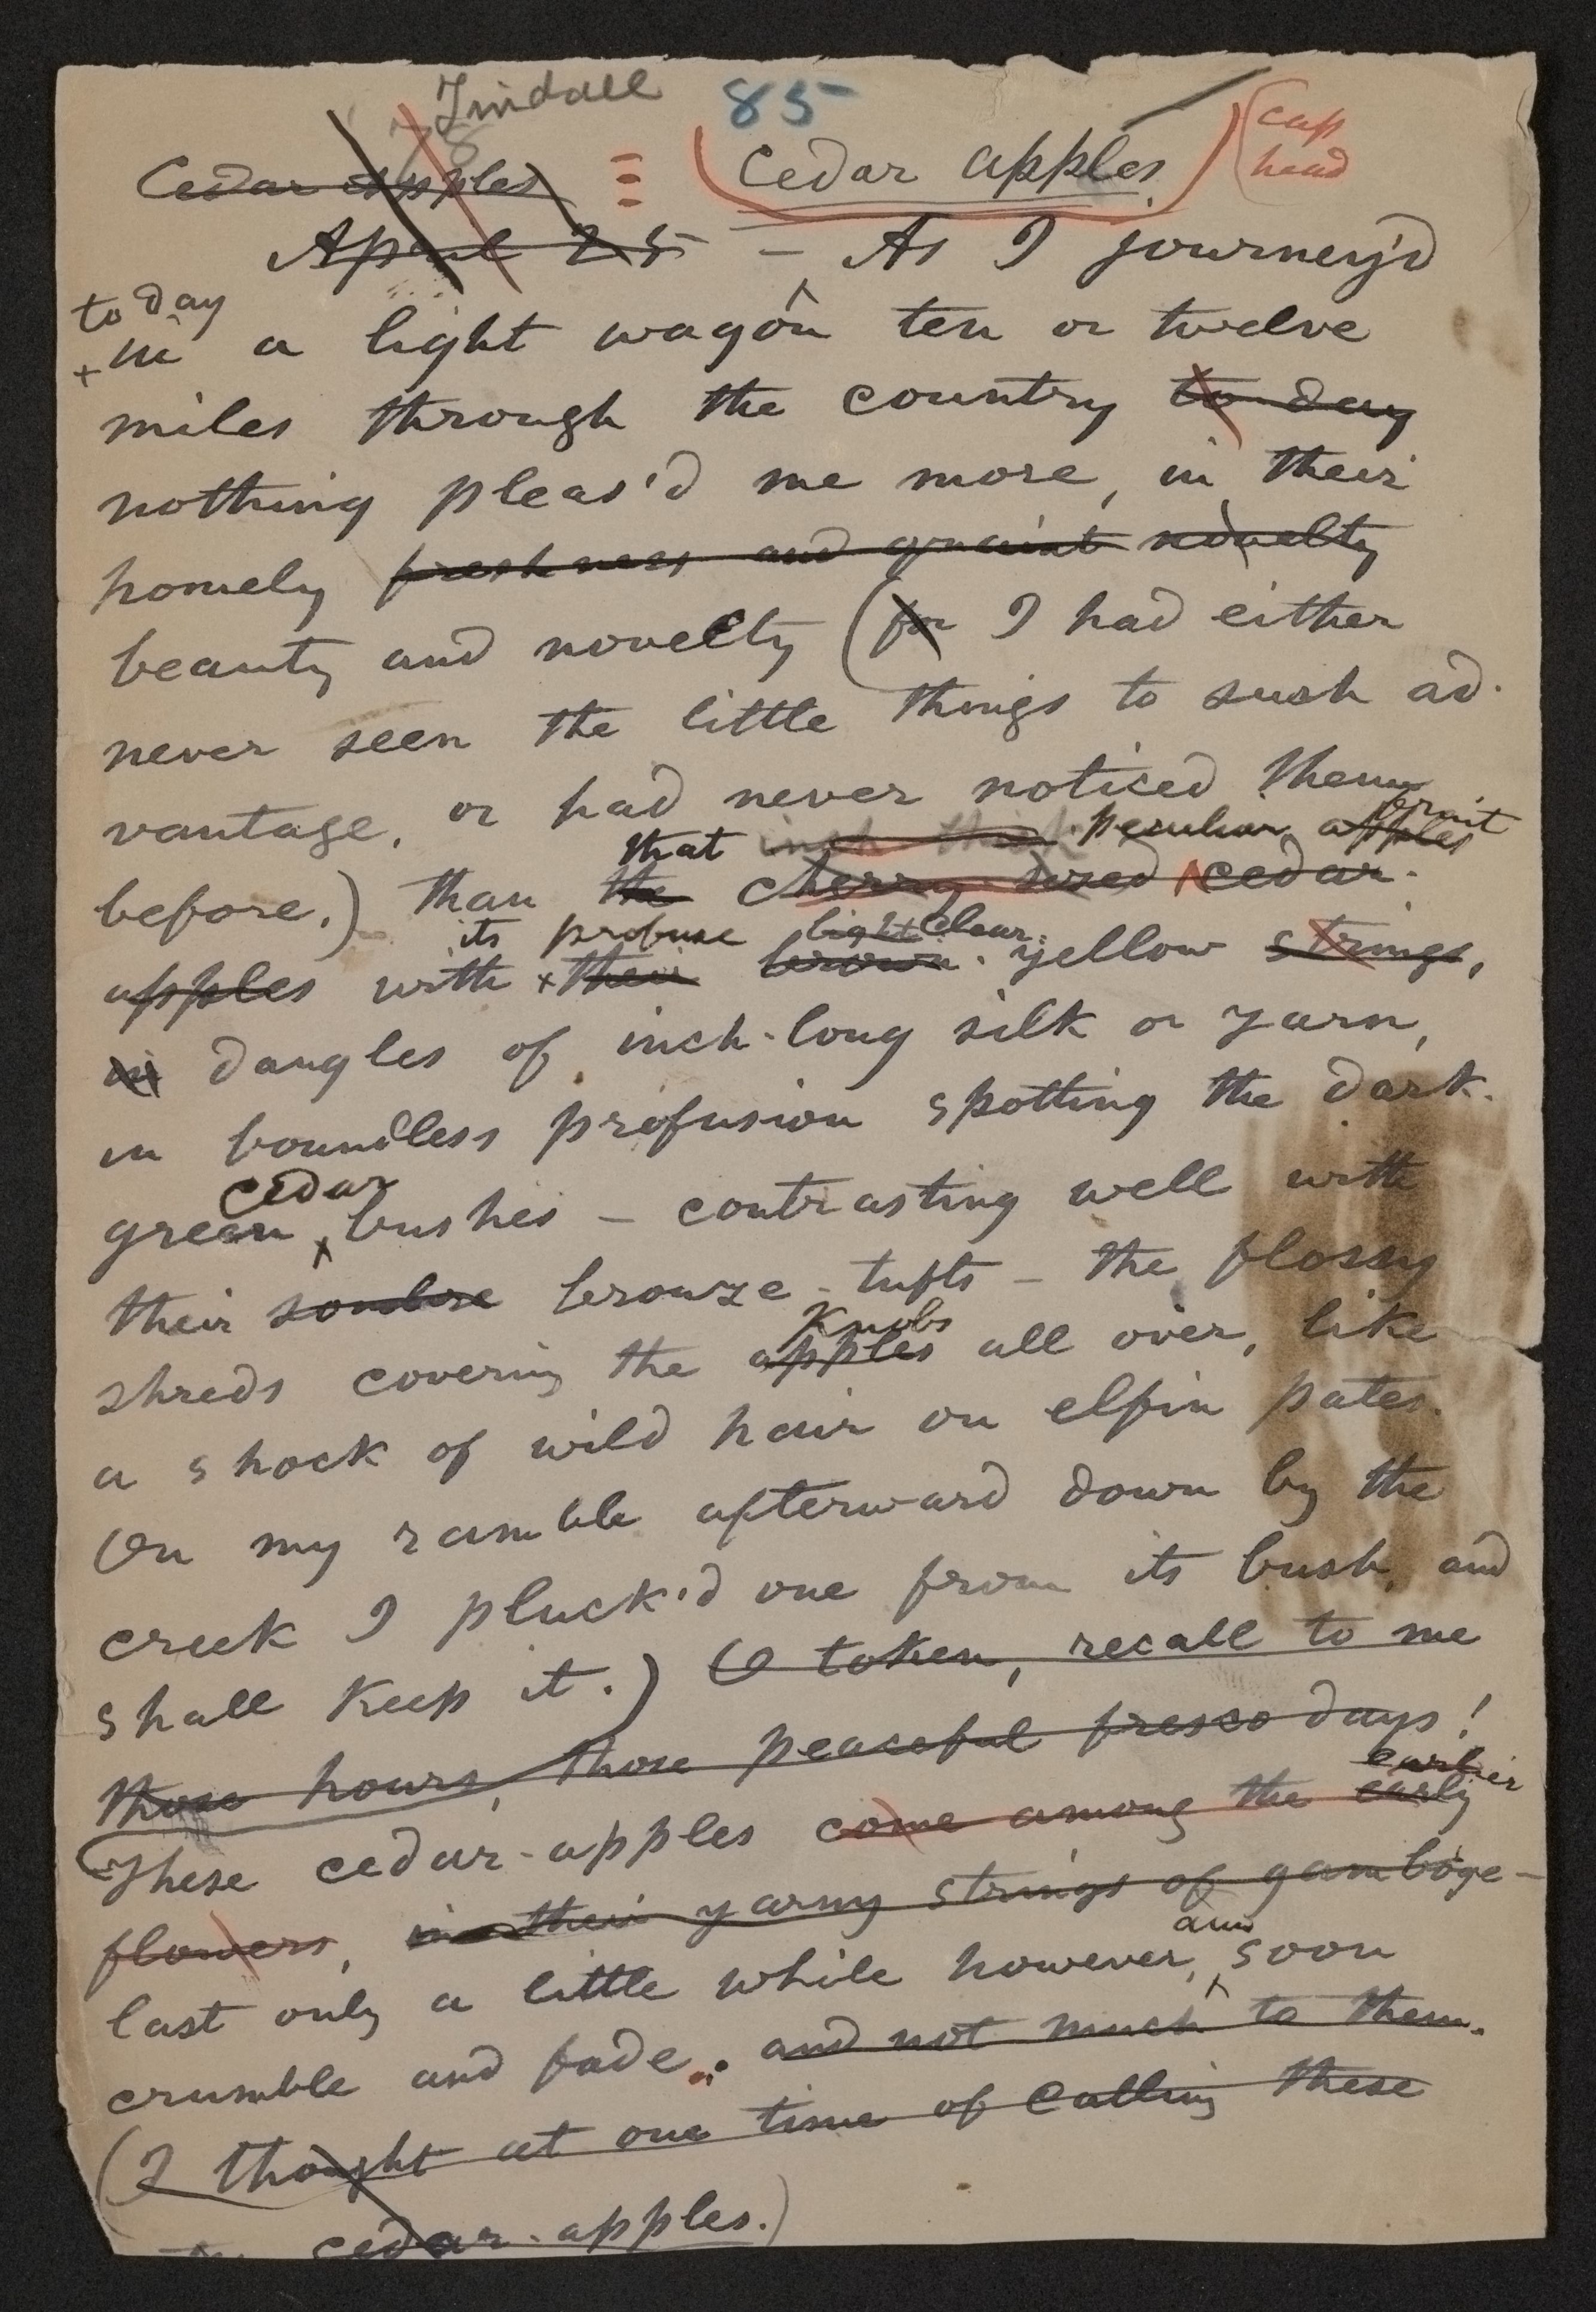 Tindall 85
78
Cedar apples = Cedar apples (cap head
April 25 – As I journey'd
to day
in a light wagon ten or twelve
miles through the country to-day
nothing pleas'd me more, in their
homely freshness and quaint novelty
beauty and novelty (for I had either
never seen the little things to such ad-
vantage, or had never noticed them
that inch-thick peculiar apples fruit
before.) than the cherry-sized cedar-
its profuse light clear-
apples with their brown-yellow strings,
in dangles of inch-long silk or yarn,
in boundless profusion spotting the dark-
cedar
green bushes – contrasting well with
their sombre bronze-tufts – the flossy
knobs
shreds covering the apples all over, like
a shock of wild hair on elfin pates.
On my ramble afterward down by the
creek I pluck'd one from its bush, and
shall keep it.) (O token, recall to me
those hours, those peaceful fresco days!
earlier
These cedar-apples come among the early
flowers, in their yarny strings of gamboge-
and
last only a little while however, soon
crumble and fade. and not much to them.
(I thought at one time of calling these
cedar-apples.)